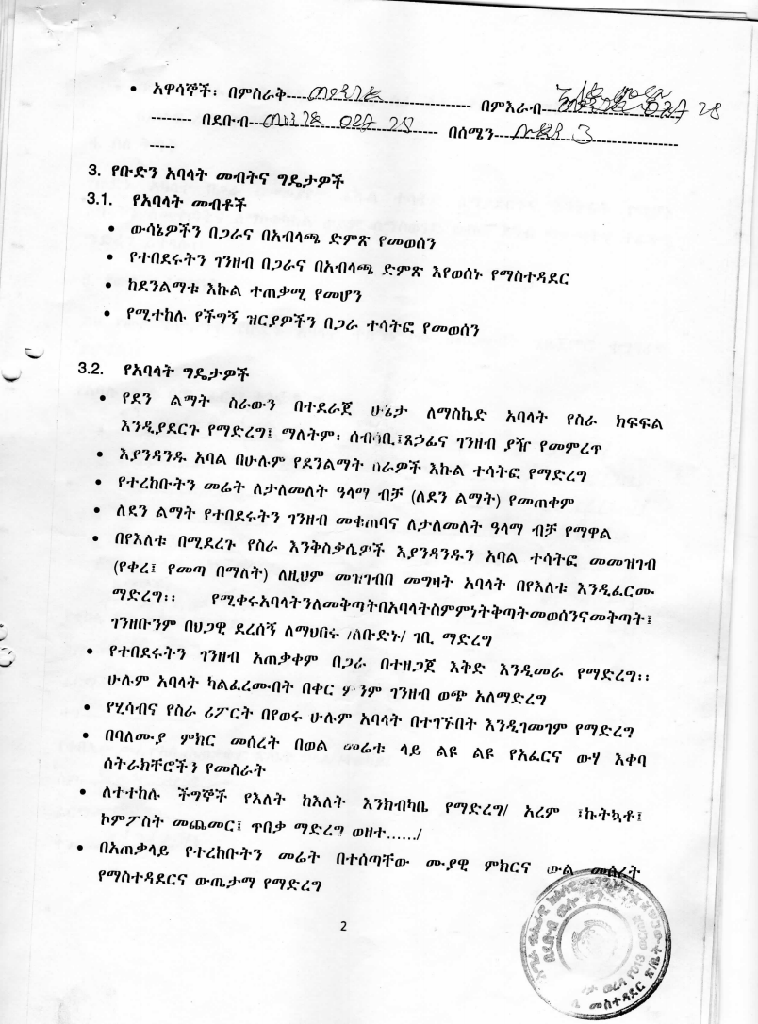 • አዋሳኞች፡ በምስራቅ---- ---- በምእራብ----
-------- በደቡብ---- ---- በሰሜን---- ----
-----
3. የቡድን አባላት መብትና ግዴታዎች
3.1. የአባላት መብቶች
• ውሳኔዎችን በጋራና በአብላጫ ድምጽ የመወሰን
• የተበደሩትን ገንዘብ በጋራና በአብላጫ ድምጽ እየወሰኑ የማስተዳደር
• ከደንልማቱ እኩል ተጠቃሚ የመሆን
• የሚተከሉ የችግኝ ዝርያዎችን በጋራ ተሳትፎ የመወሰን
3.2. የአባላት ግዴታዎች
• የደን ልማት ስራውን በተደራጀ ሁኔታ ለማስኬድ አባላት የስራ ክፍፍል
እንዲያደርጉ የማድረግ፤ ማለትም፡ ሰብሳቢ፤ጸኃፊና ገንዘብ ያዥ የመምረጥ
• እያንዳንዱ አባል በሁሉም የደንልማት ስራዎች እኩል ተሳትፎ የማድረግ
• የተረከቡትን መሬት ለታለመለት ዓላማ ብቻ (ለደን ልማት) የመጠቀም
• ለደን ልማት የተበደሩትን ገንዘብ መቁጠባና ለታለመለት ዓላማ ብቻ የማዋል
• በየእለቱ በሚደረጉ የስራ እንቅስቃሴዎች እያንዳንዱን አባል ተሳትፎ መመዝገብ
(የቀረ፤ የመጣ በማለት) ለዚህም መዝገብበ መግዛት አባላት በየእለቱ እንዲፈርሙ
ማድረግ፡፡ የሚቀሩአባላትንለመቅጣትበአባላትስምምነትቅጣትመወሰንናመቅጣት፤
ገንዘቡንም በህጋዊ ደረሰኝ ለማህበሩ /ለቡድኑ/ ገቢ ማድረግ
• የተበደሩትን ገንዘብ አጠቃቀም በጋራ በተዘጋጀ እቅድ እንዲመራ የማድረግ፡፡
ሁሉም አባላት ካልፈረሙበት በቀር ምንም ገንዘብ ወጭ አለማድረግ
• የሂሳብና የስራ ሪፖርት በየወሩ ሁሉም አባላት በተገኙበት እንዲገመገም የማድረግ
• በባለሙያ ምክር መሰረት በወል መሬቱ ላይ ልዩ ልዩ የአፈርና ውሃ እቀባ
ስትራክቸሮችን የመስራት
• ለተተከሉ ችግኞች የእለት ከእለት እንክብካቤ የማድረግ/ አረም ፤ኩትኳቶ፤
ኮምፖስት መጨመር፤ ጥበቃ ማድረግ ወዘተ....../
• በአጠቃላይ የተረከቡትን መሬት በተሰጣቸው ሙያዊ ምክርና ውል መሰረት
የማስተዳደርና ውጤታማ የማድረግ
2